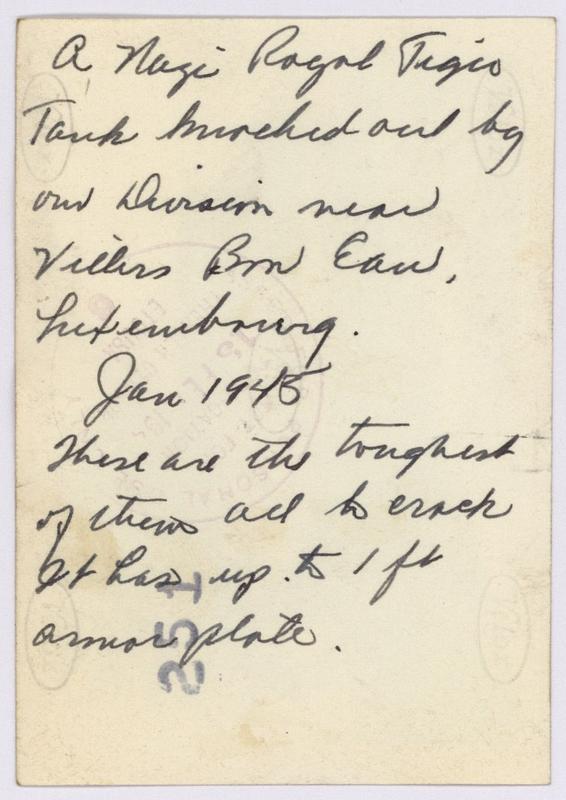 A Nazi Royal Tiger
Tank knocked out by
our Division near
Villers Bon Eau,
Luxembourg.
Jan 1945
These are the toughest
of them all to crack
It has up to 1 ft
armor plate.
251